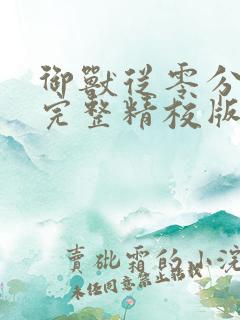 御獸從零分
完整精校版
賣砒霜的小浣
未经同意禁止转载